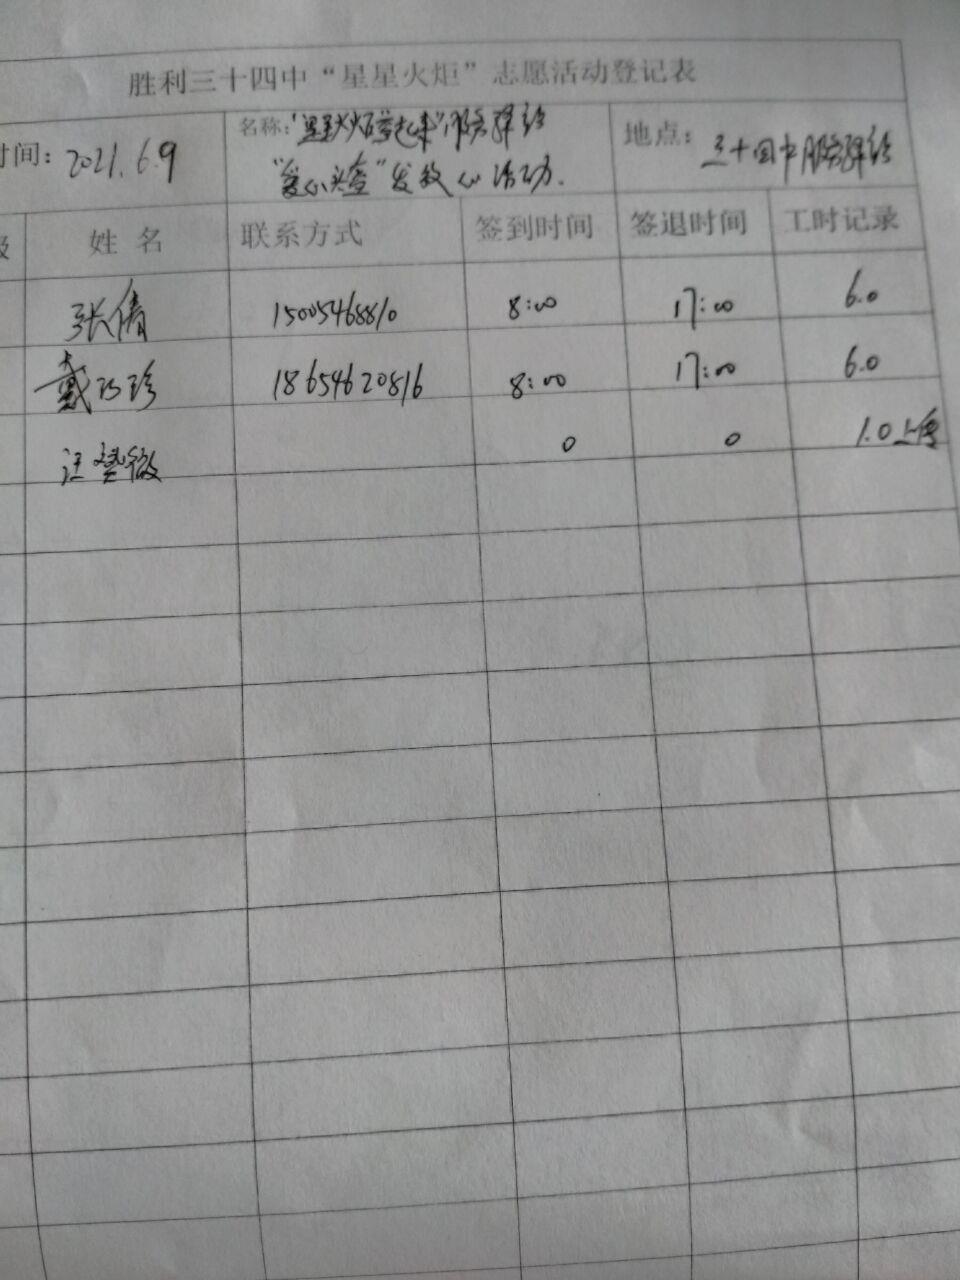 胜利三十四中“星星火炬”志愿活动登记表
时间：2021.6.9
名称：“星星火炬举起来”服务驿站
“爱心义卖”发放心活动.
地点：三十四中服务驿站
级 姓名 联系方式 签到时间 签退时间 工时记录
张倩 15005468810 8:00 17:00 6.0
戴巧珍 18654620816 8:00 17:00 6.0
汪 微 0 0 1.0上传